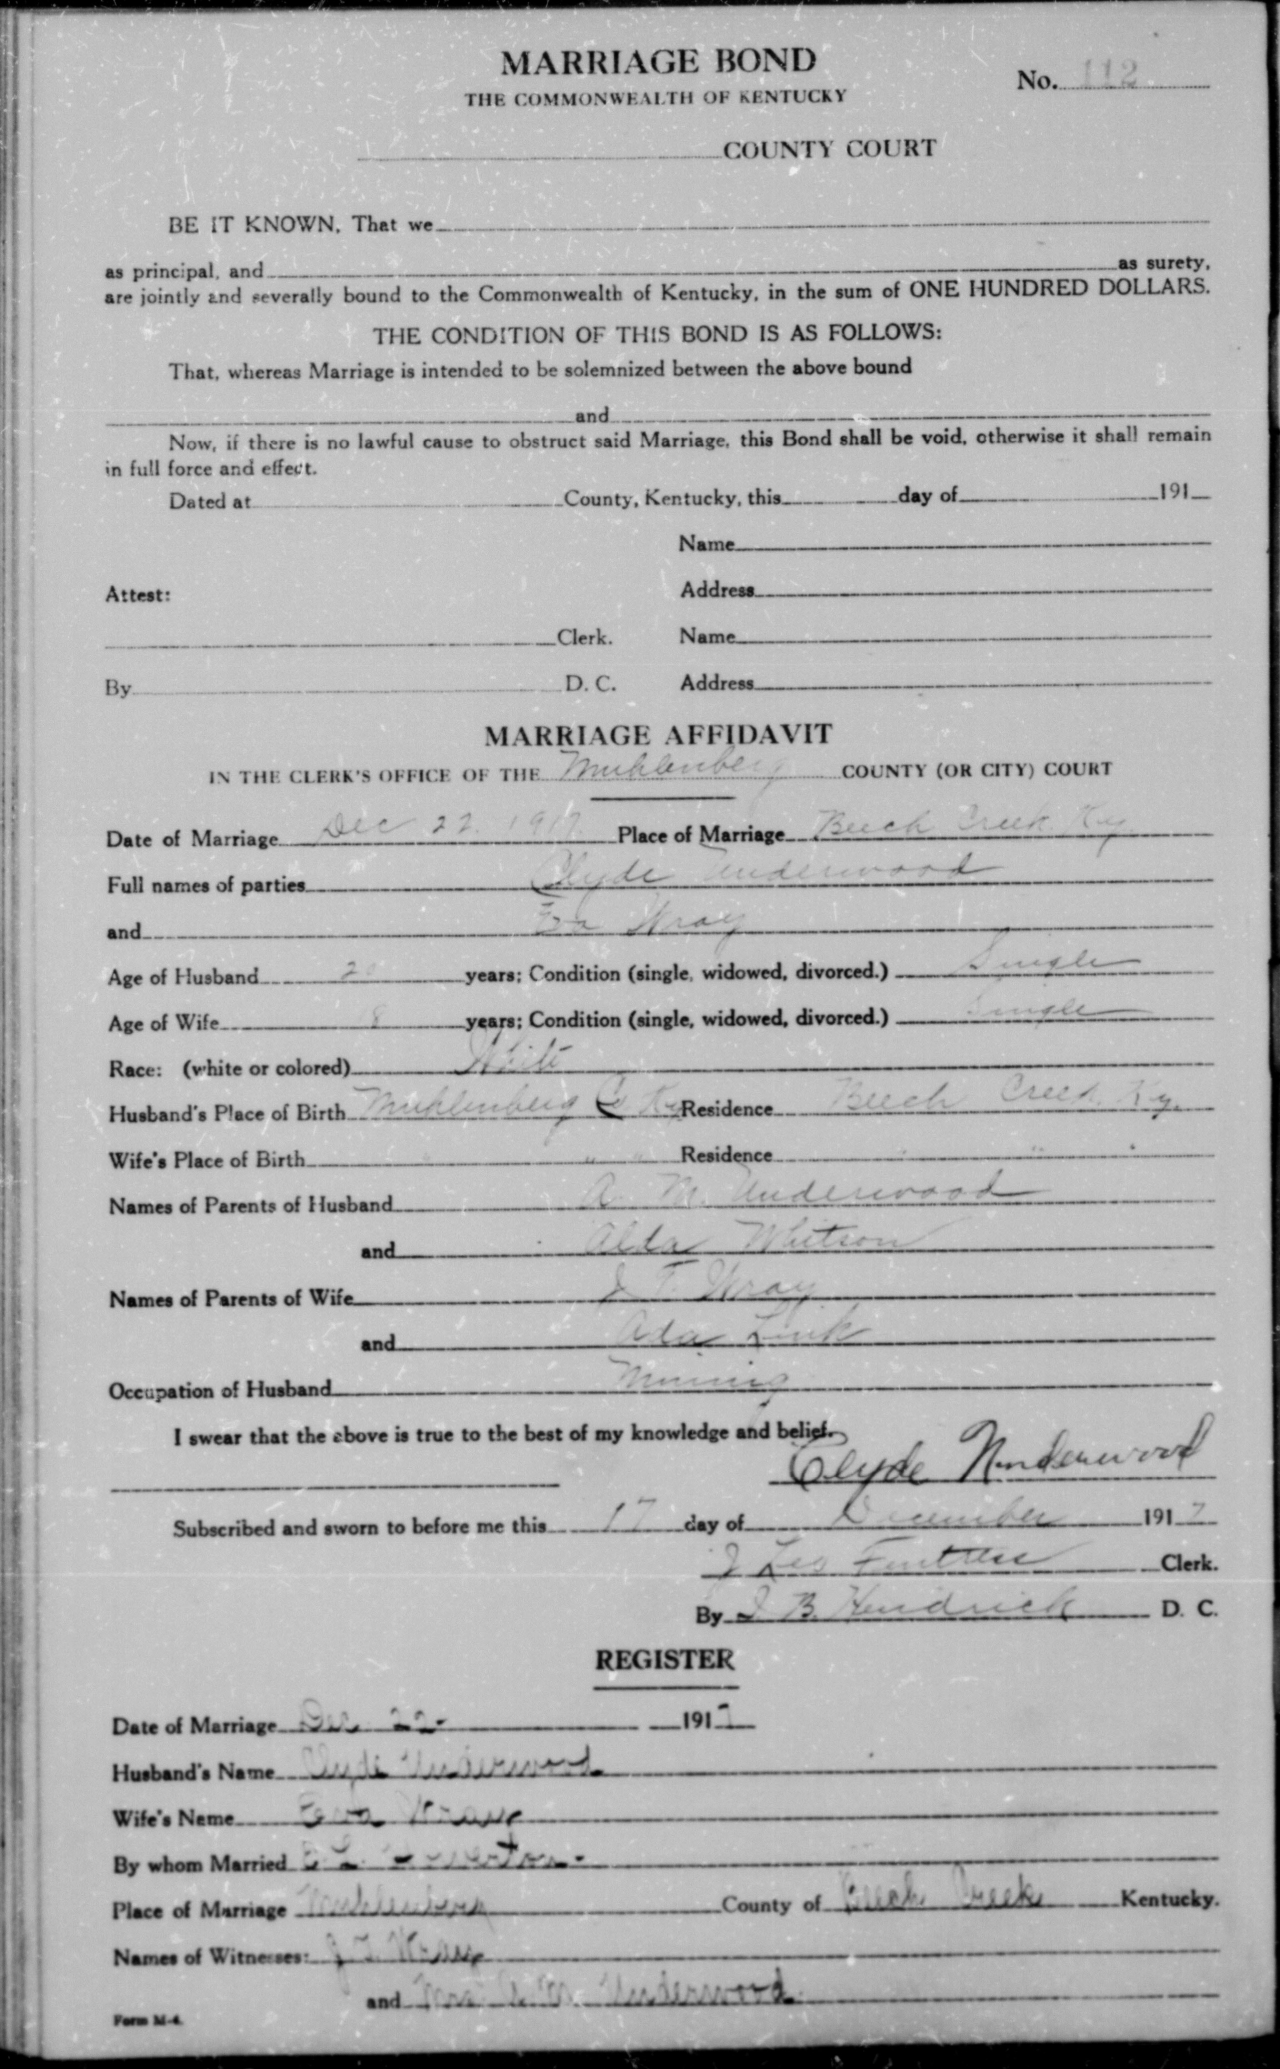 MARRIAGE BOND
THE COMMONWEALTH OF KENTUCKY
No. 112
COUNTY COURT
BE IT KNOWN, That we
as principal, and as surety,
are jointly and severally bound to the Commonwealth of Kentucky, in the sum of ONE HUNDRED DOLLARS.
THE CONDITION OF THIS BOND IS AS FOLLOWS:
That, whereas Marriage is intended to be solemnized between the above bound
and
Now, if there is no lawful cause to obstruct said Marriage, this Bond shall be void, otherwise it shall remain
in full force and effect.
Dated at County, Kentucky, this day of 191
Name
Attest: Address
Clerk. Name
By D. C. Address
MARRIAGE AFFIDAVIT
IN THE CLERK'S OFFICE OF THE Muhlenberg COUNTY (OR CITY) COURT
Date of Marriage Dec 22. 1917. Place of Marriage Beech Creek Ky.
Full names of parties Clyde Underwood
and Wray
Age of Husband 20 years; Condition (single, widowed, divorced.) Single
Age of Wife 18 years; Condition (single, widowed, divorced.) Single
Race: (white or colored) White
Husband's Place of Birth Muhlenberg Co Ky Residence Beech Creek, Ky.
Wife's Place of Birth " " " Residence " " "
Names of Parents of Husband A. M. Underwood
and Alda Whitson
Names of Parents of Wife J T. Wray
and Ada Link
Occupation of Husband Mining
I swear that the above is true to the best of my knowledge and belief.
Clyde Underwood
Subscribed and sworn to before me this 17 day of December 1917
J Leo Fentress Clerk.
By J B. Hendrick D. C.
REGISTER
Date of Marriage Dec 22- 1917
Husband's Name Clyde Underwood
Wife's Name Wray
By whom Married
Place of Marriage Muhlenberg County of Beech Creek Kentucky.
Names of Witnesses: J T. Wray
and Mrs A. M. Underwood
Form M-4.